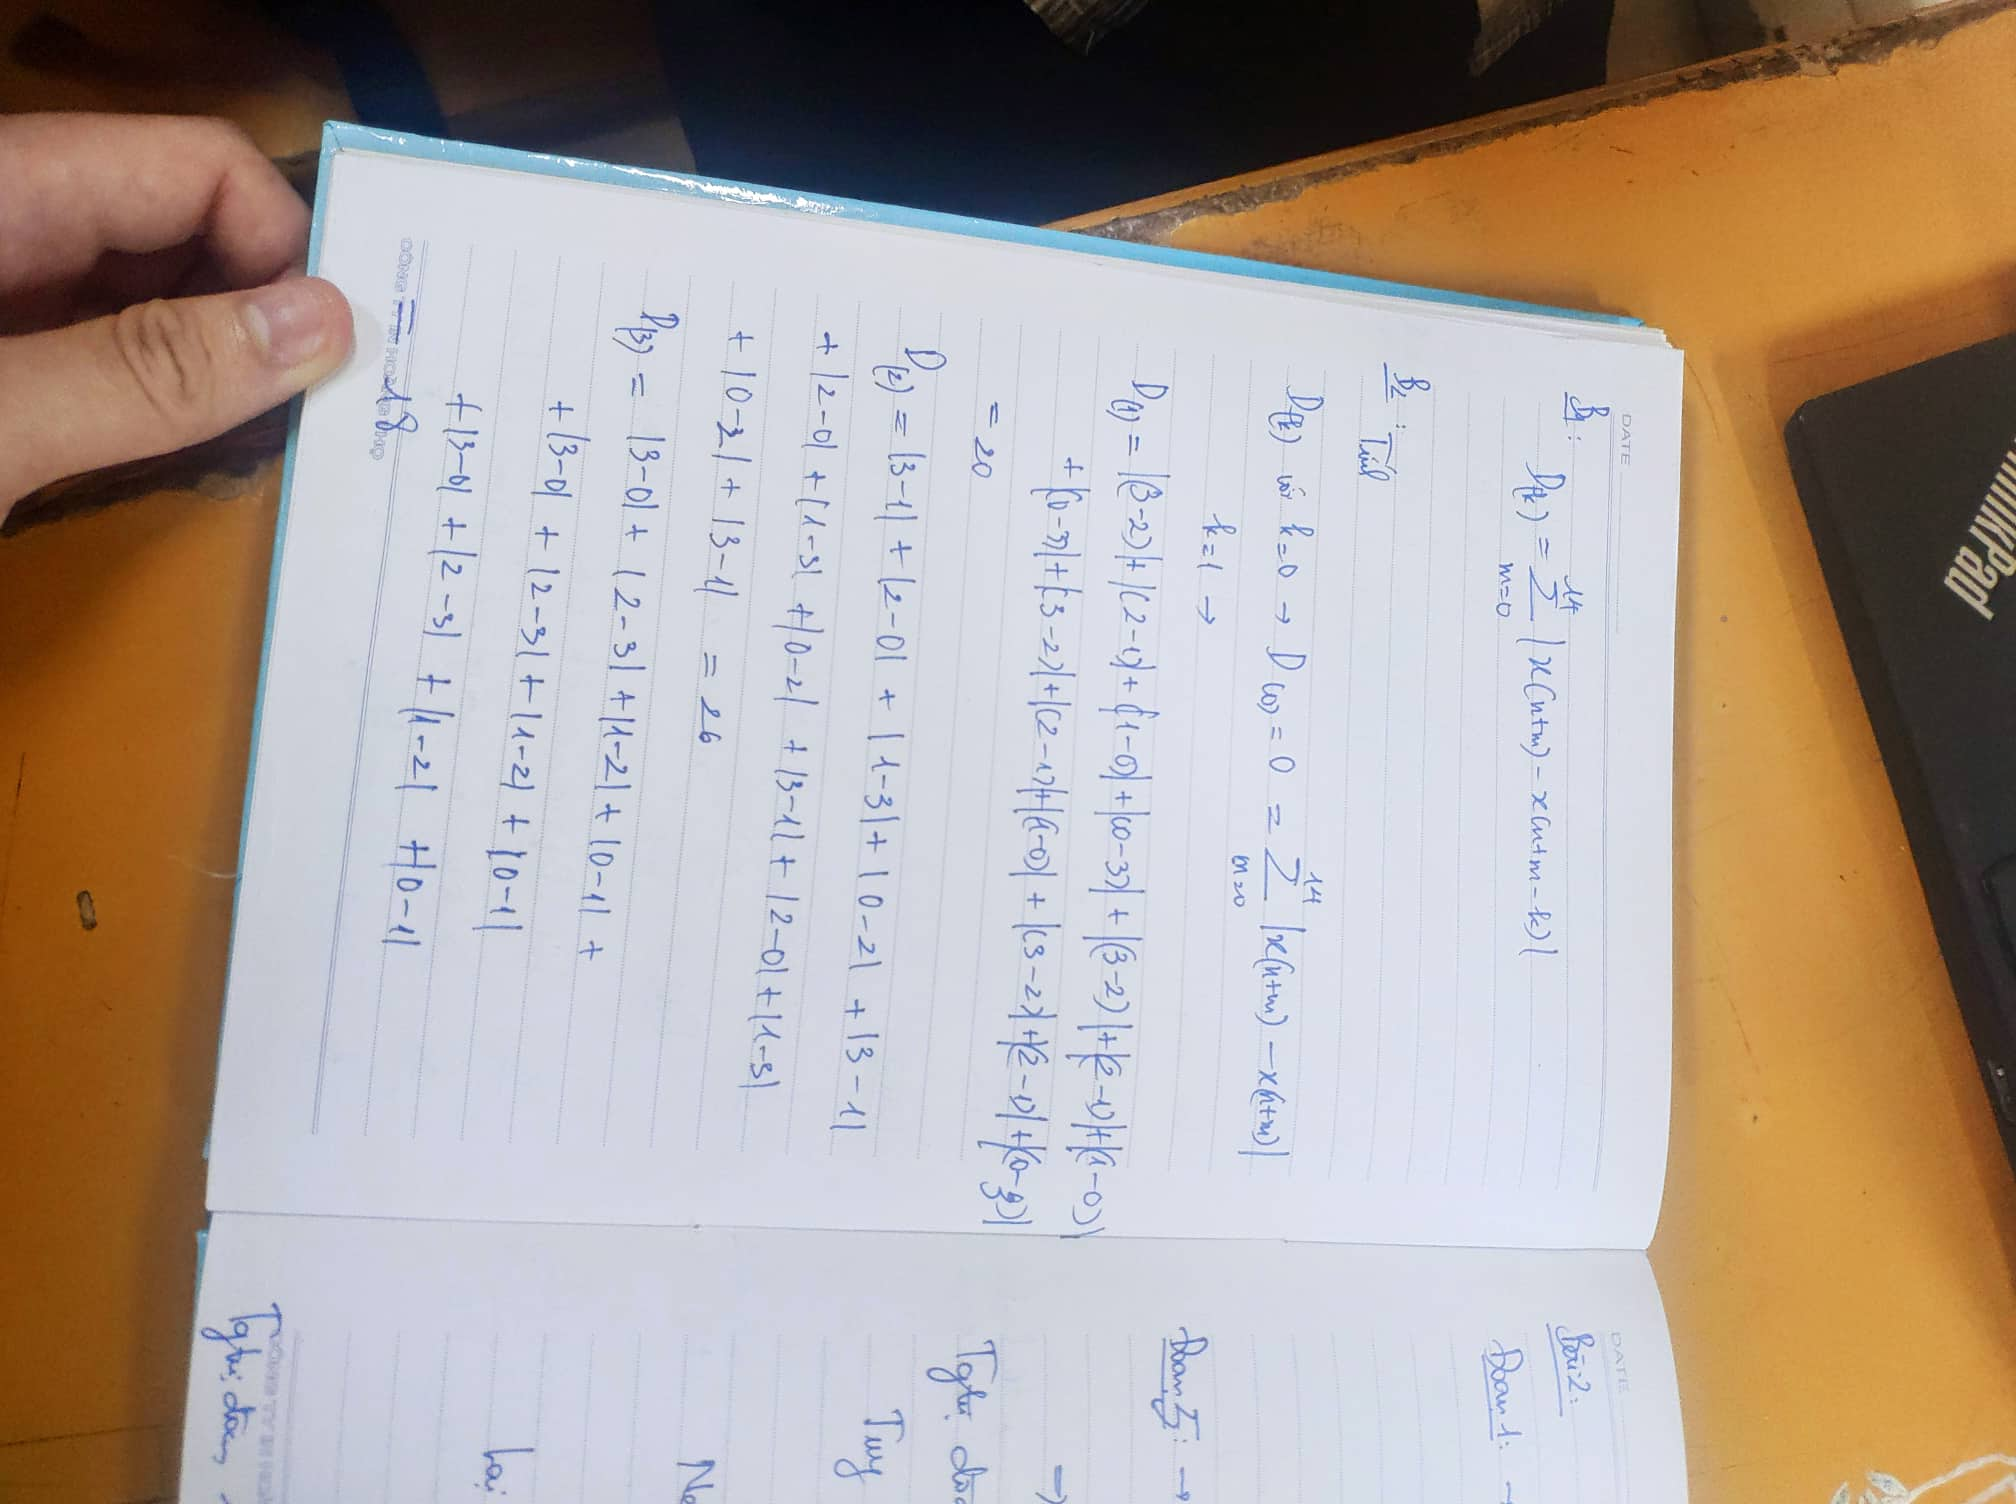 DATE
B1:
D(k) = 14 Σ m=0 |x(n+m) - x(n+m-k)|
B2: Tính
D(k) với k=0 → D(0) = 0 = 14 Σ m=0 |x(n+m) - x(n+m)|
k=1 →
D(1) = |(3-2)| + |(2-1)| + |(1-0)| + |(0-3)| + |(3-2)| + |(2-1)| + |(1-0)|
+ |(0-3)| + |(3-2)| + |(2-1)| + |(1-0)| + |(3-2)| + |(2-1)| + |(0-3)|
= 20
D(2) = |3-1| + |2-0| + |1-3| + |0-2| + |3-1|
+ |2-0| + |1-3| + |0-2| + |3-1| + |2-0| + |1-3|
+ |0-2| + |3-1| = 26
D(3) = |3-0| + |2-3| + |1-2| + |0-1| +
+ |3-0| + |2-3| + |1-2| + |0-1|
+ |3-0| + |2-3| + |1-2| + |0-1|
= 18
DATE
Bài 2:
Đoạn 1: →
Đoạn 2: →
⇒
Tghị
Ne
Lại
Tghị
ThinkPad